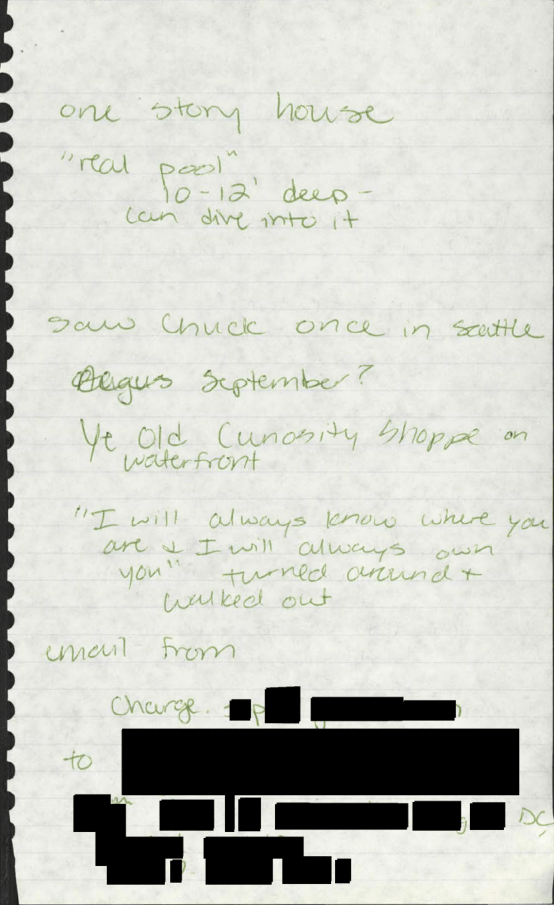 one story house
"real pool"
10-12' deep -
can dive into it
saw Chuck once in Seattle
September?
Ye Old Curiosity Shoppe on
waterfront
"I will always know where you
are & I will always own
you" turned around +
walked out
email from
Charge.
to
DC,